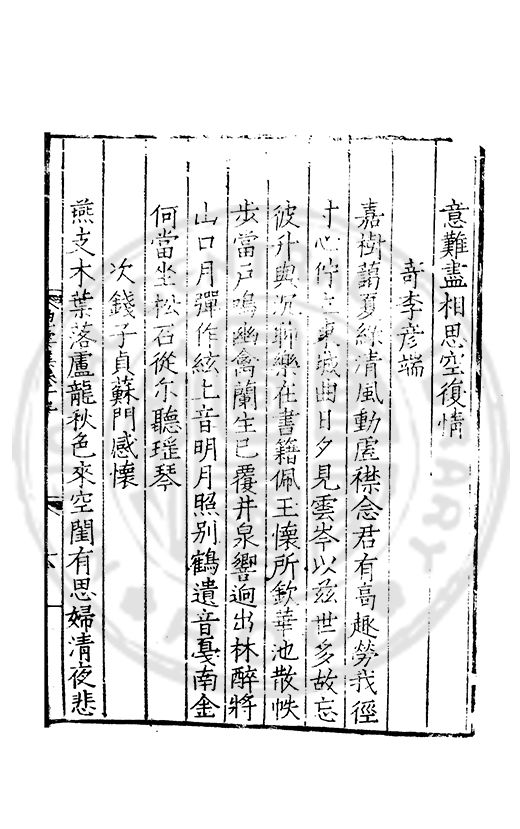 意難盡相思空復情
寄李彥端
嘉樹藹夏綠清風動虛襟念君有高趣勞我徑
寸心佇立東城曲日夕見雲岑以茲世多故忘
彼升與沉聊樂在書籍佩玉懷所欽華池散帙
步當戶鳴幽禽蘭生已覆井泉響迥出林醉將
山口月彈作絃上音明月照別鶴遺音戞南金
何當坐松石從尔聽瑶琴
次錢子貞蘇門感懷
燕支木葉落盧龍秋色來空閨有思婦清夜悲